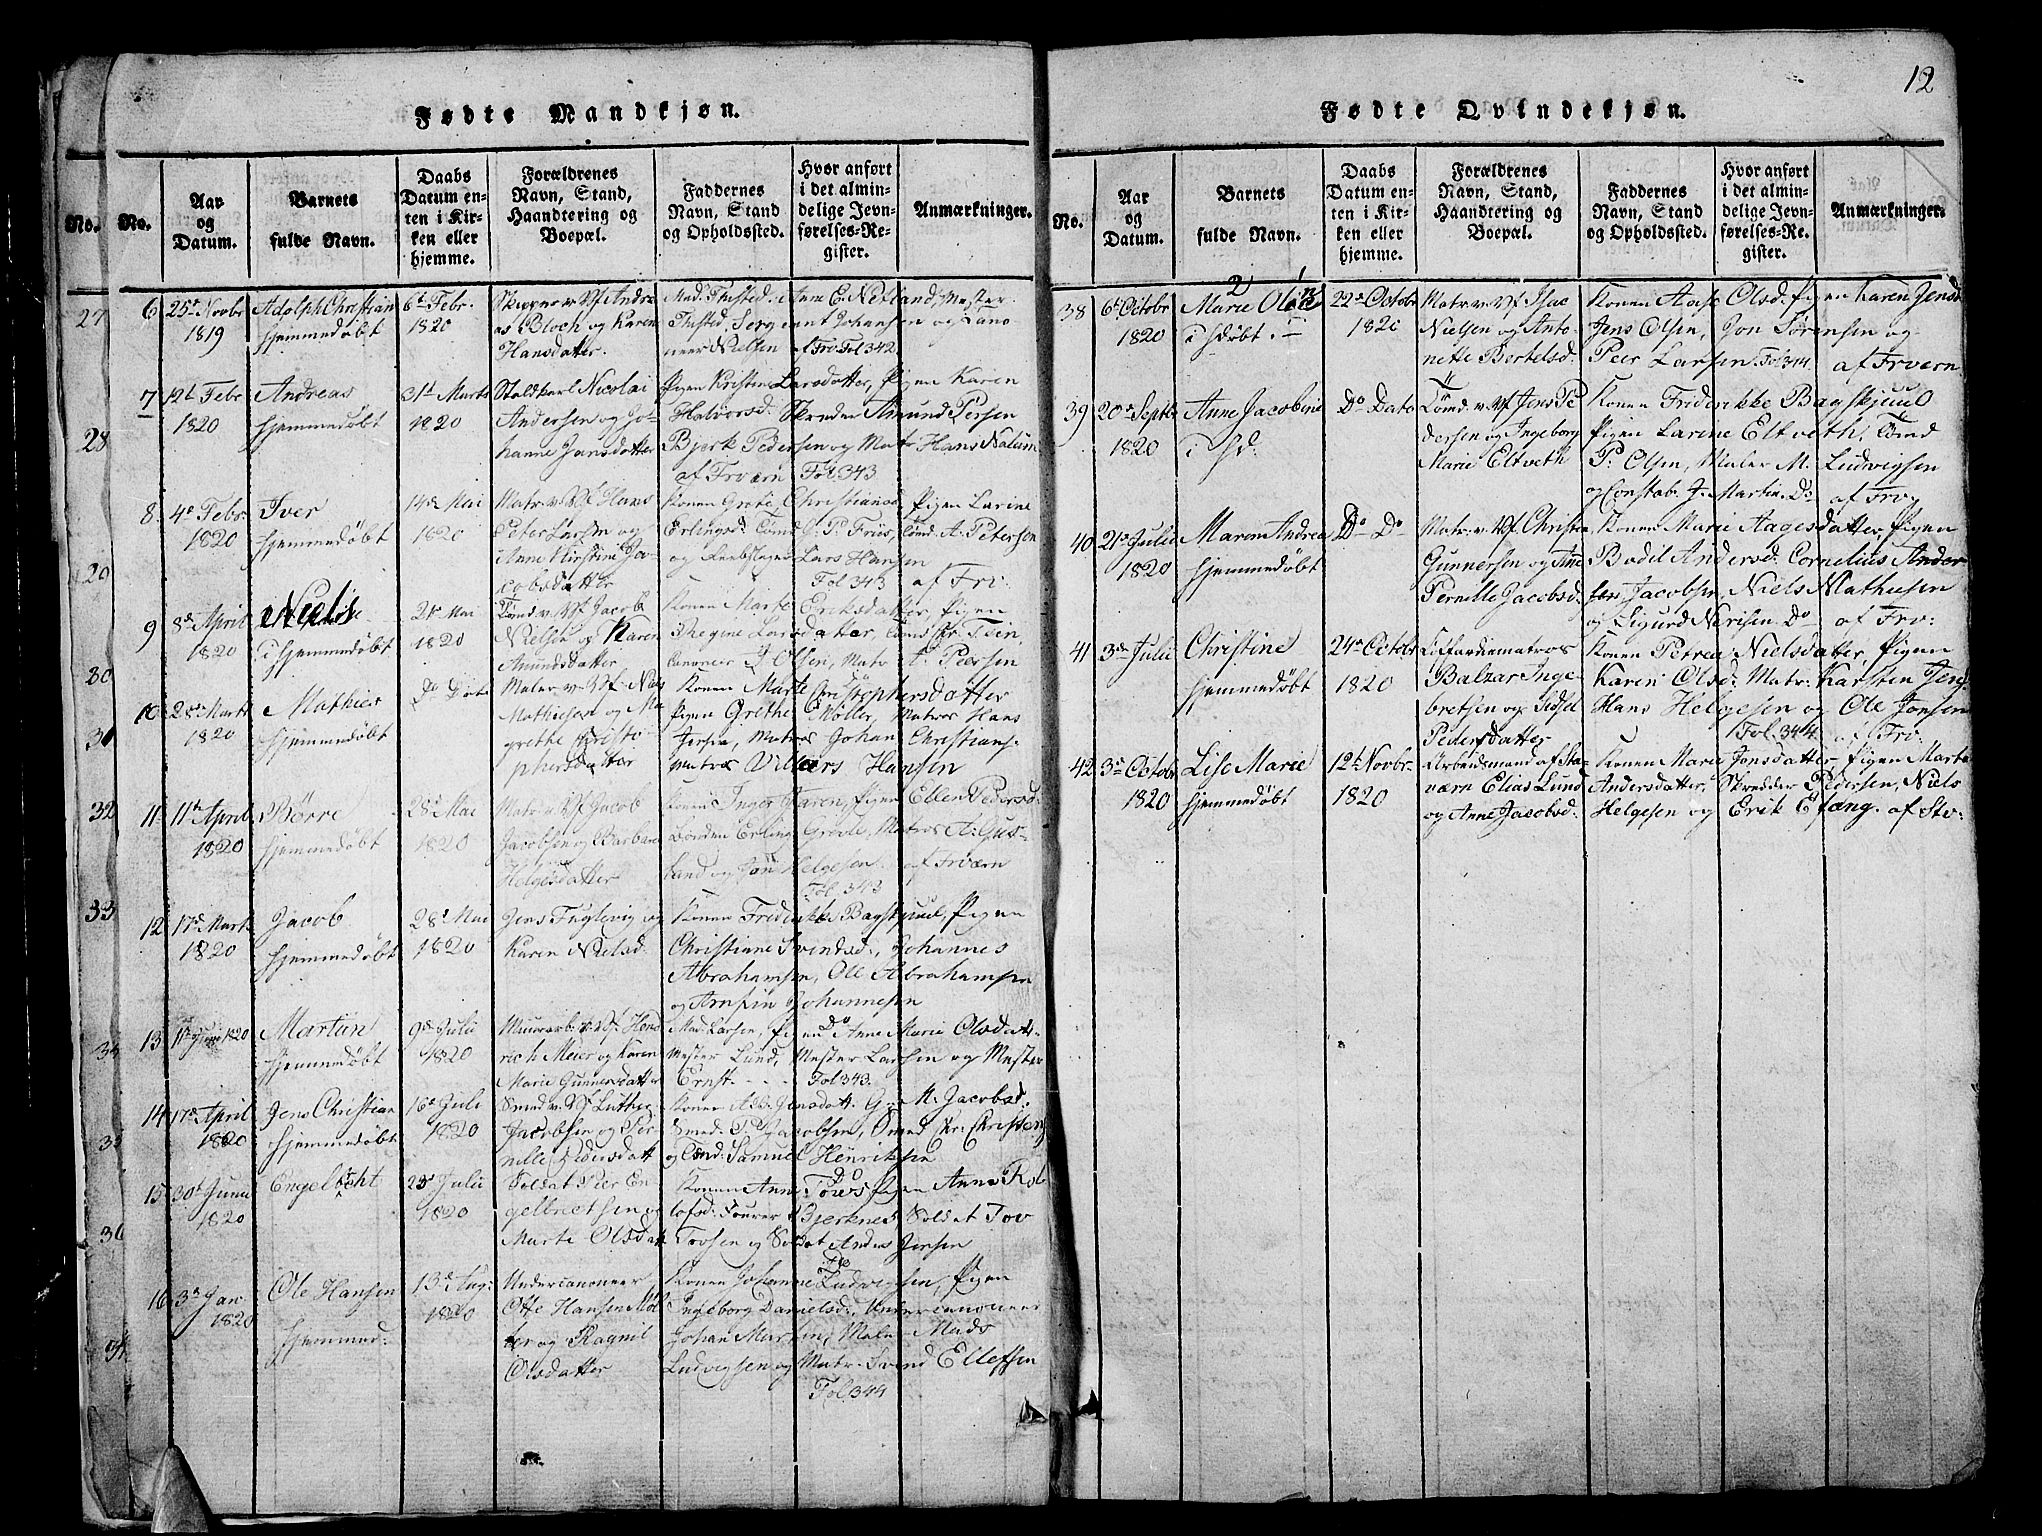 12
Fødte Mandkjøn.
No.
No.
Aar
og
Datum.
Barnets
fulde Navn.
Daabs
Datum en-
ten i Kir-
ken eller
hjemme.
Forældrenes
Navn, Stand,
Haandtering og
Boepæl.
Faddernes
Navn, Stand
og Opholdssted.
Hvor anført
i det almin-
delige Jevn-
førelses-Re-
gister.
Anmærkninger.
27
28
30
32
33
36
6 25de Novbr
1819
Adolph Christian
hjemmedøbt
6te Febr.
1820
Andre
as Bloch og Karen
Hansdatter.
Mad. Thisted, Mester
Thisted, Sergeant Johansen og
Nielsen af Frv. Fol 342
7 12te Febr
1820
Andreas
hjemmedøbt
31te Marts
1820
Nicolai
Andersen og Jo-
hanne Jansdatter
Pigen Kirstine Larsdatter, Pigen Karen
Halvorsd. Skreder Amund Persen
Bjerk Pedersen og Matr Hans Nalum
af Frværn Fol. 343
8. 4de Febr.
1820
Iver
hjemmedøbt
14de Mai
1820
Matr. v. Vf. Hans
Peter Larsen og
Anne Kirstine Ja-
cobsdatter
Konen Grete Christians. Pigen Larine
Erlingsd. Tømd. J. P. Friis, Tømd. A. Petersen
og Reebslager Lars Hansen
Fol 343 af Frv:
9 8de April
1820
Niels
hjemmedøbt
21de Mai
1820
Tømd. v. Vf. Jacob
Nielsen og Karen
Amundsdatter
Konen Marte Eriksdatter, Pigen
Regine Larsdatter,
Canoneer J. Olsen, Matr A. Peersen
10 28de Marts
1820
Mathies
hjemmedøbt
Do Dato
Maler v. Vf. Niels
Mathiesen og Ma
grethe Christo-
phersdatter
Konen Marte Christophersdatter
Pigen Grethe Møller, Matros Hans
Jersen, Matros Johan Christians.
Matros Villars Hansen
11 11te April
1820
Børre
hjemmedøbt
28de Mai
1820
Matr. v. Vf. Jacob
Jacobsen og Barbara
Helgesdatter
Konen Inger Karen, Pigen Ellen Pedersd.
Bonden Erling Grevle, Matros A. Gus-
land og Jon Helgesen. af Frværn
Fol. 343
12 17de Marts
1820
Jacob
hjemmedøbt
28de Mai
1820
Jens Fuglevig og
Karen Nielsd.
Konen Fredrikke Bagskjuul, Pigen
Christiane Svendsd., Johannes
Abrahamsen, Ole Abrahamsen
og Arnfin Johannesen
13 1820
Martin
hjemmedøbt
9de Juli
1820
Muurarb. v. Vf. Hend
rich Meier og Karen
Marie Gunnersdatter
Mad. Larsen, Pigen Anne Marie Olsdatt.
Mester Lund, Mester Larsen og Mester
Ernst. Fol 343.
14 17de April
1820
Jens Christian
hjemmedøbt
16de Juli
1820
Smed v. Vf. Luther
Jacobsen og Per-
nille Pedersdatt
Konen Jensdatt. M. Jacobsd.
Smed Jacobsen, Smed Chr. Christens
og Tømd. Samuel Henriksen
15 30te Juni
1820
Engelbrcht
23de Juli
1820
Soldat Peer En
gelbretsen og
Marte Olsdatt
Konen Anne Tores Pigen Anne Rol
lofsd. Fourer Bjerknes, Soldat Tov
Tovsen og Soldat Anders Jensen
16 3de Jan
1820
Ole Hansen
hjemmed:
13de Aug:
1820
Undercanoneer
Offe Hansen Møl
ler og Ragnil
Olsdatter
Konen Johanne Ludvigsen, Pigen
Ingeborg Danielsd., Undercanoneer
Johan Martin, Maler Mads
Ludvigsen og Matr. Svend Ellefsen
Fol. 344
Fødte Qvindekjøn.
No.
Aar
og
Datum.
Barnets
fulde Navn.
Daabs
Datum en-
ten i Kir-
ken eller
hjemme.
Forældrenes
Navn, Stand,
Haandtering og
Boepæl.
Faddernes
Navn, Stand
og Opholdssted.
Hvor anført
i det almin-
delige Jevn-
førelses-Re-
gister.
Anmærkninger.
38 6te Octobr
1820
Marie Oline
22de Octobr
1820
Matr. v. Vf. Isac
Nielsen og Anto-
nette Bertelsd.
Konen Aase Olsd. Pigen Karen Jensd
Jens Olsen, Jon Sørensen og
Peer Larsen. Fol. 344 af Frværn
39 20de Septr
1820
Anne Jacobine
Do Dato
Tømd. v. Vf. Jens Pe
dersen og Ingeborg
Marie Eltveth
Konen Friderikke Bagskjuul
Pigen Larine Eltveth, Tømd
P. Olsen, Maler M. Ludvigsen
og Constab. J. Martin. Do af Frv,
40 21de Julii
1820
Maren Andrea
hjemmedøbt
Do Do
Matr. v. Vf. Christen
Gunnersen og Ane
Pernille Jacobsd.
Konen Marie Aagesdatter, Pigen
Bodil Andersd. Cornelius Ander
sen, Jacobsen, Niels Mathiesen
og Sigurd Nerisen. Do af Frv:
41 3de Julii
Christine
hjemmedøbt
24de Octobr
1820
Cofardiematros
Balzar Inge-
bretsen og Sidsel
Pedersdatter
Konen Petrea Nielsdatter, Pigen
Karen Olsd. Matr. Karsten Jens
Hans Helgesen og Ole Jonsen
Fol. 344. af Frv.
42 3de Octobr
1820
Lise Marie
hjemmedøbt
12te Novbr
1820
Arbeidsmand af Sta-
værn Elias Lund
og Anne Jacobsd:
Konen Maria Jonsdatter, Pigen Marte
Andersdatter, Skredder Pedersen, Niels
Helgesen og Erik Efang. af Stv: